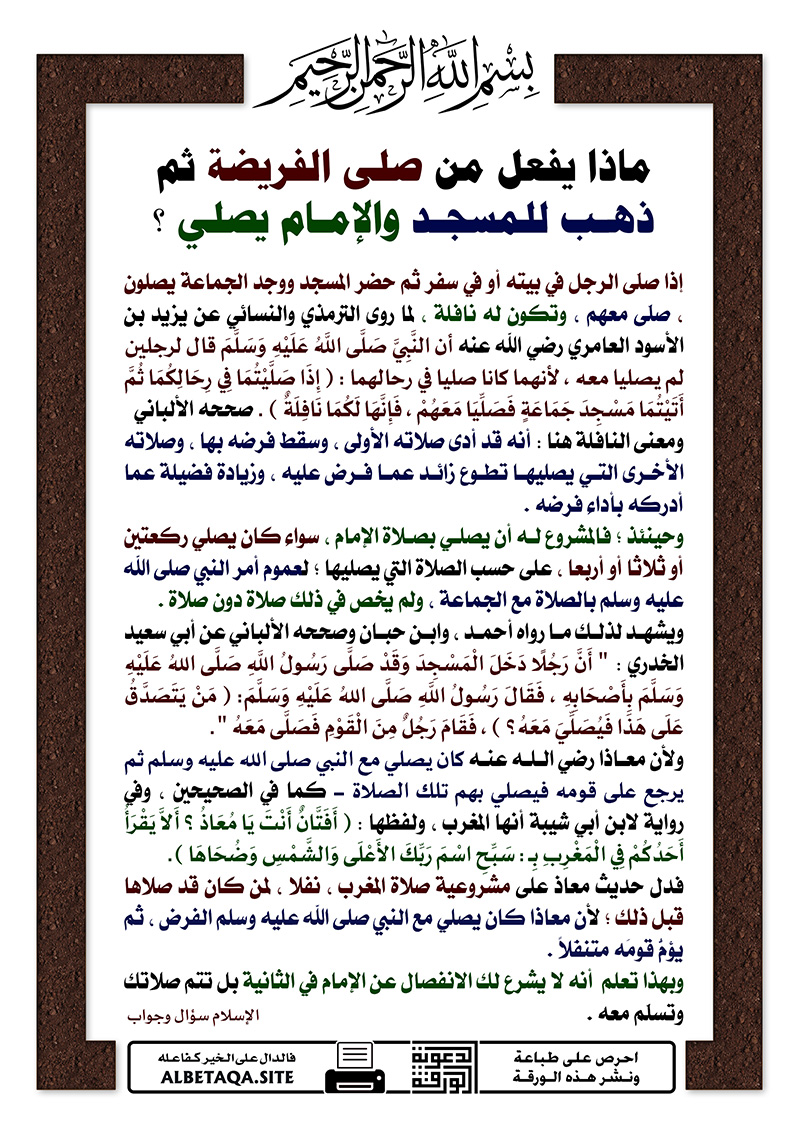 بِسْمِ اللَّهِ الرَّحْمَنِ الرَّحِيمِ
ماذا يفعل من صلى الفريضة ثم
ذهب للمسجد والإمام يصلي ؟
إذا صلى الرجل في بيته أو في سفر ثم حضر المسجد ووجد الجماعة يصلون
، صلى معهم ، وتكون له نافلة ، لما روى الترمذي والنسائي عن يزيد بن
الأسود العامري رضي الله عنه أن النَّبِيَّ صَلَّى اللَّهُ عَلَيْهِ وَسَلَّمَ قال لرجلين
لم يصليا معه ، لأنهما كانا صليا في رحالهما : ( إِذَا صَلَّيْتُمَا فِي رِحَالِكُمَا ثُمَّ
أَتَيْتُمَا مَسْجِدَ جَمَاعَةٍ فَصَلِّيَا مَعَهُمْ ، فَإِنَّهَا لَكُمَا نَافِلَةٌ ) . صححه الألباني
ومعنى النافلة هنا : أنه قد أدى صلاته الأولى ، وسقط فرضه بها ، وصلاته
الأخرى التي يصليها تطوع زائد عما فرض عليه ، وزيادة فضيلة عما
أدركه بأداء فرضه .
وحينئذ ؛ فالمشروع له أن يصلي بصلاة الإمام ، سواء كان يصلي ركعتين
أو ثلاثا أو أربعا ، على حسب الصلاة التي يصليها ؛ لعموم أمر النبي صلى الله
عليه وسلم بالصلاة مع الجماعة ، ولم يخص في ذلك صلاة دون صلاة .
ويشهد لذلك ما رواه أحمد ، وابن حبان وصححه الألباني عن أبي سعيد
الخدري : " أَنَّ رَجُلًا دَخَلَ الْمَسْجِدَ وَقَدْ صَلَّى رَسُولُ اللَّهِ صَلَّى اللهُ عَلَيْهِ
وَسَلَّمَ بِأَصْحَابِهِ ، فَقَالَ رَسُولُ اللَّهِ صَلَّى اللهُ عَلَيْهِ وَسَلَّمَ: ( مَنْ يَتَصَدَّقُ
عَلَى هَذَا فَيُصَلِّيَ مَعَهُ؟ ) ، فَقَامَ رَجُلٌ مِنَ الْقَوْمِ فَصَلَّى مَعَهُ ".
ولأن معاذا رضي الله عنه كان يصلي مع النبي صلى الله عليه وسلم ثم
يرجع على قومه فيصلي بهم تلك الصلاة - كما في الصحيحين ، وفي
رواية لابن أبي شيبة أنها المغرب ، ولفظها : ( أَفَتَّانٌ أَنْتَ يَا مُعَاذُ ؟ أَلاَّ يَقْرَأُ
أَحَدُكُمْ فِي الْمَغْرِبِ بِـ : سَبِّحِ اسْمَ رَبِّكَ الأَعْلَى وَالشَّمْسِ وَضُحَاهَا ).
فدل حديث معاذ على مشروعية صلاة المغرب ، نفلا ، لمن كان قد صلاها
قبل ذلك ؛ لأن معاذا كان يصلي مع النبي صلى الله عليه وسلم الفرض ، ثم
يؤمُّ قومَه متنفلاً .
وبهذا تعلم أنه لا يشرع لك الانفصال عن الإمام في الثانية بل تتم صلاتك
وتسلم معه .
الإسلام سؤال وجواب
احرص على طباعة
ونشر هذه الورقة
الورقة الدعوية
فالدال على الخير كفاعله
ALBETAQA.SITE